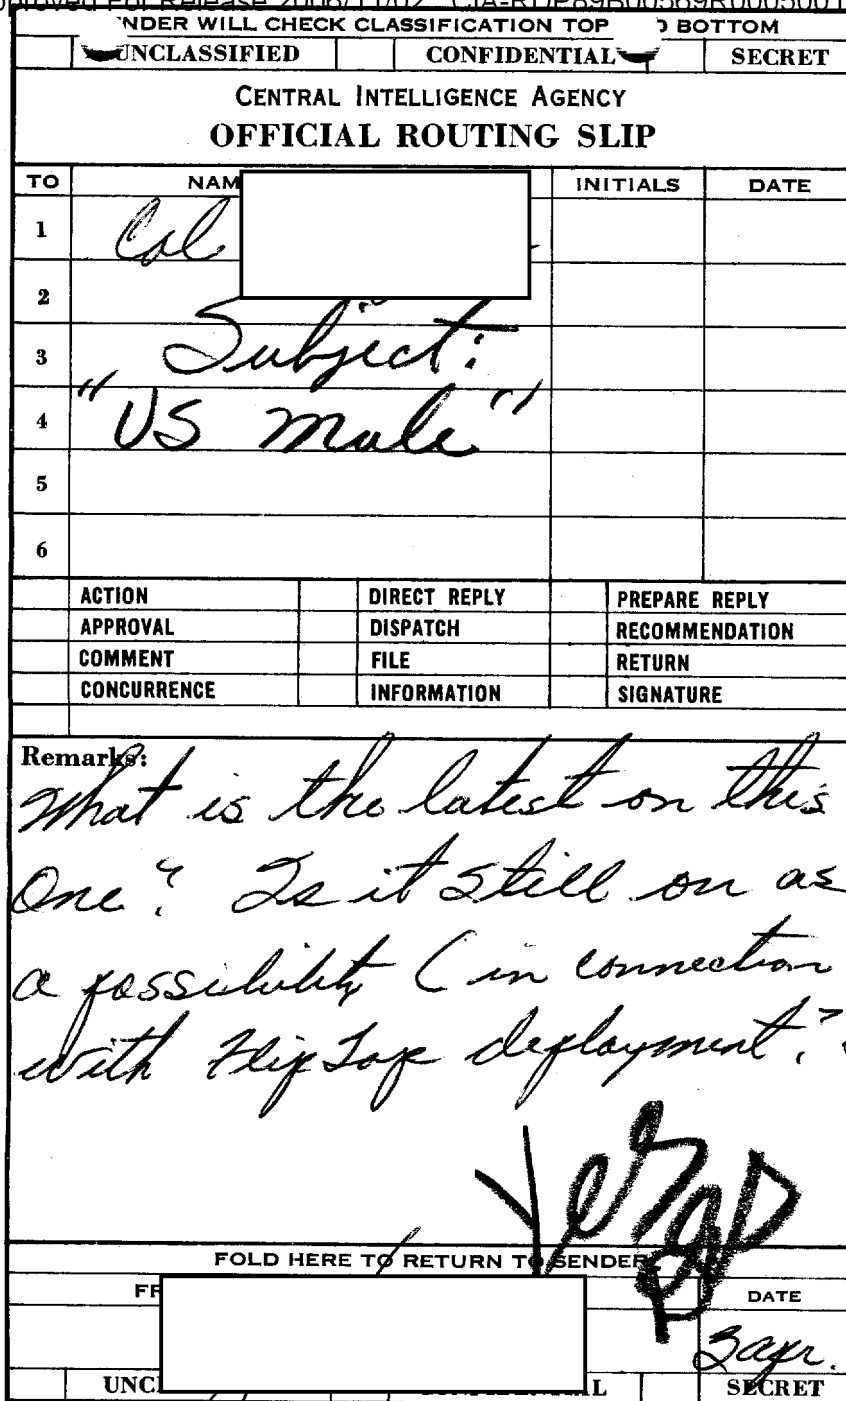 Approved For Release 2006/11/02 : CIA-RDP89B00569R0005001
NDER WILL CHECK CLASSIFICATION TOP D BOTTOM
UNCLASSIFIED CONFIDENTIAL SECRET
CENTRAL INTELLIGENCE AGENCY
OFFICIAL ROUTING SLIP
TO NAM INITIALS DATE
1 Col
2
3 Subject:
4 "US Male"
5
6
ACTION DIRECT REPLY PREPARE REPLY
APPROVAL DISPATCH RECOMMENDATION
COMMENT FILE RETURN
CONCURRENCE INFORMATION SIGNATURE
Remarks:
What is the latest on this
One? Is it still on as
a possibility (in connection
with FlipTop deployment?
Yes
FOLD HERE TO RETURN TO SENDER
FR DATE
3 apr.
UNCL L SECRET